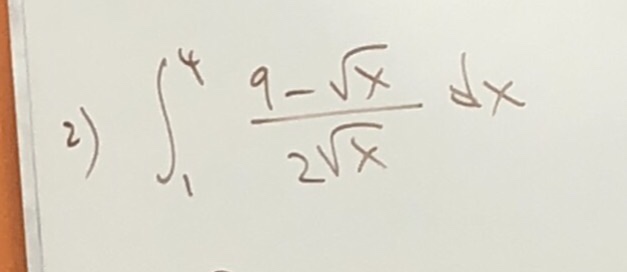 2) ∫₁⁴ (9 - √x)/(2√x) dx